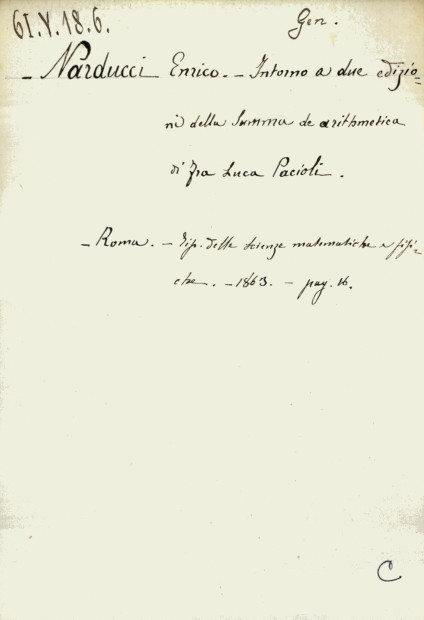 61.V.18.6.
Gen.
- Narducci Enrico. - Intorno a due edizio-
ni della Summa de arithmetica
di Fra Luca Pacioli.
- Roma. - Tip. delle scienze matematiche e fisi-
che. - 1863. - pag. 16.
C